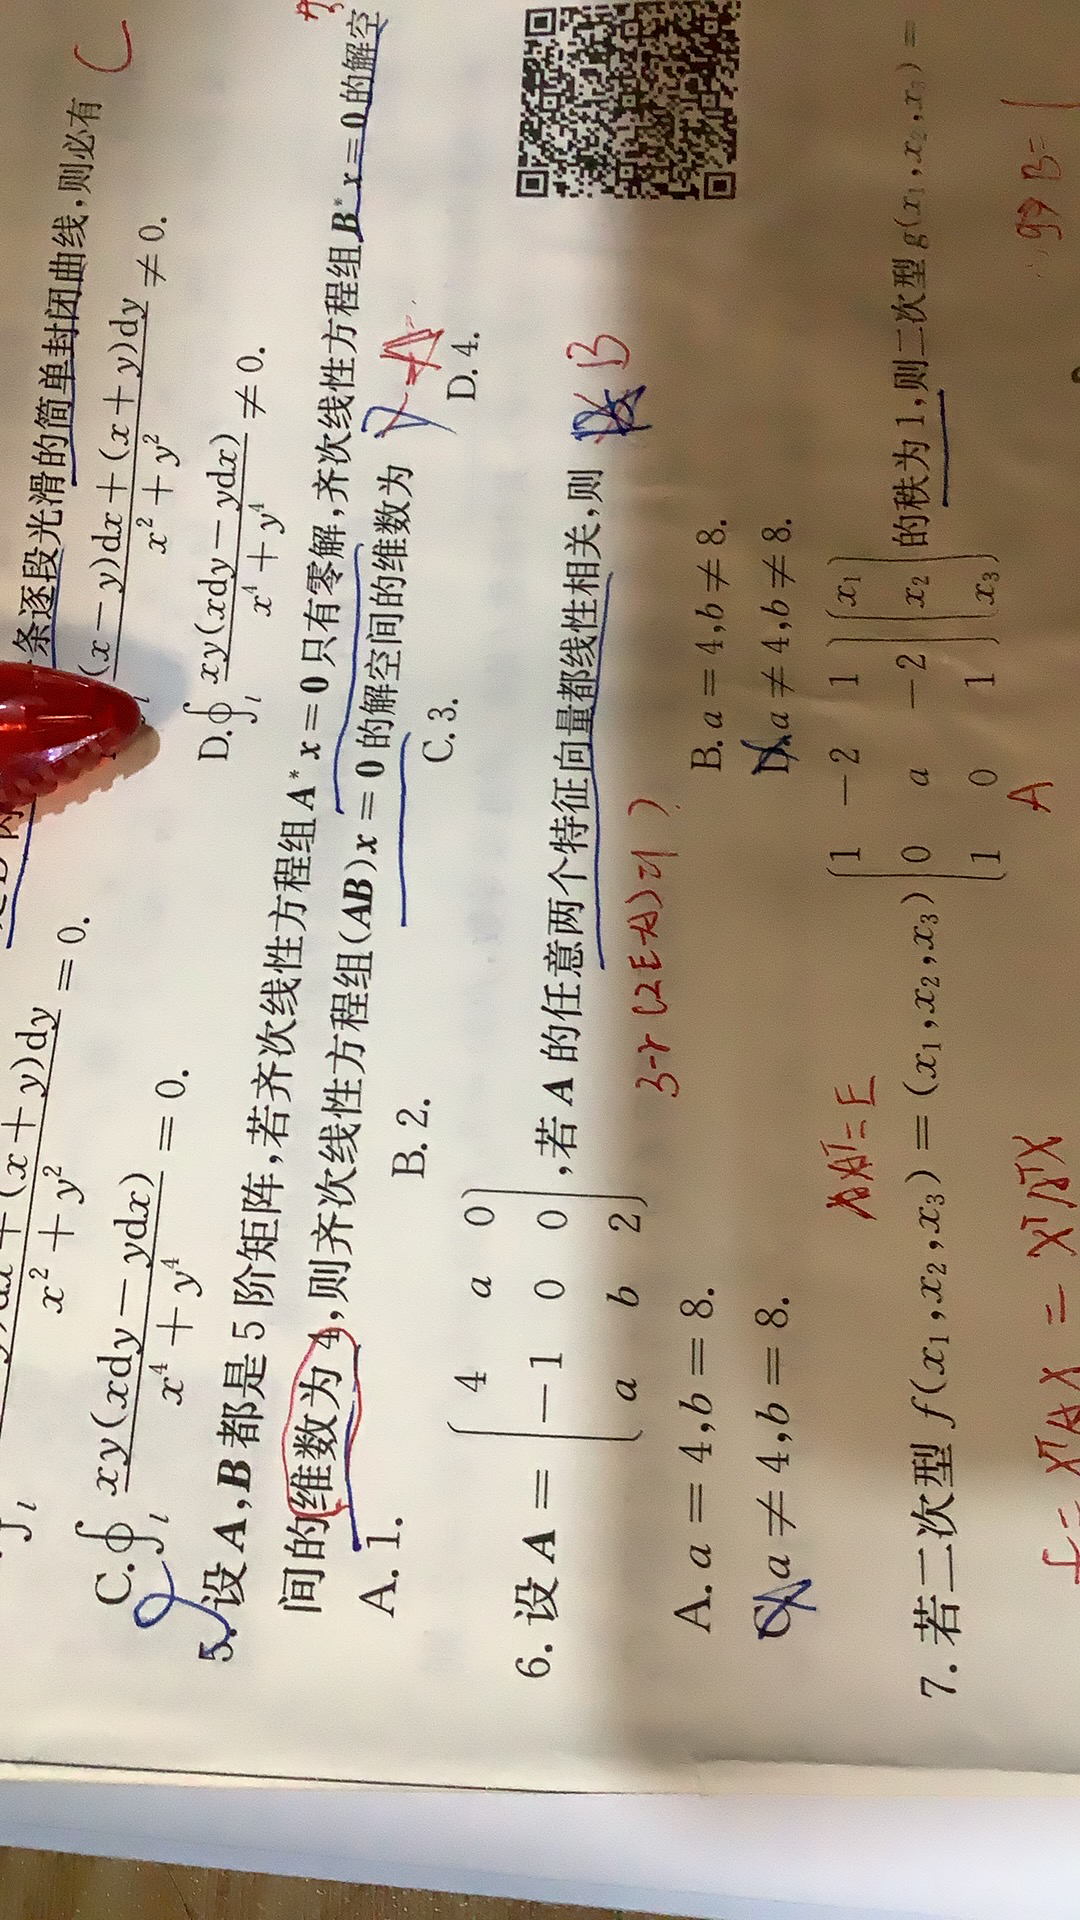 条逐段光滑的简单封闭曲线,则必有 C
(x-y)dx+(x+y)dy / x²+y² ≠ 0.
x²+y² = 0.
C. ∮_l xy(xdy-ydx) / x⁴+y⁴ = 0. D. ∮_l xy(xdy-ydx) / x⁴+y⁴ ≠ 0.
5. 设 A,B 都是 5 阶矩阵,若齐次线性方程组 A* x = 0 只有零解,齐次线性方程组 B* x = 0 的解空
间的维数为 4,则齐次线性方程组(AB)x = 0 的解空间的维数为 A
A. 1. B. 2. C. 3. D. 4.
6. 设 A = (4 a 0; -1 0 0; a b 2),若 A 的任意两个特征向量都线性相关,则 B
3-r(2E-A)=1
A. a = 4,b = 8. B. a = 4,b ≠ 8.
C. a ≠ 4,b = 8. D. a ≠ 4,b ≠ 8.
7. 若二次型 f(x₁,x₂,x₃) = (x₁,x₂,x₃) (1 -2 1; 0 a -2; 1 0 1) (x₁; x₂; x₃) 的秩为 1,则二次型 g(x₁,x₂,x₃) =
A